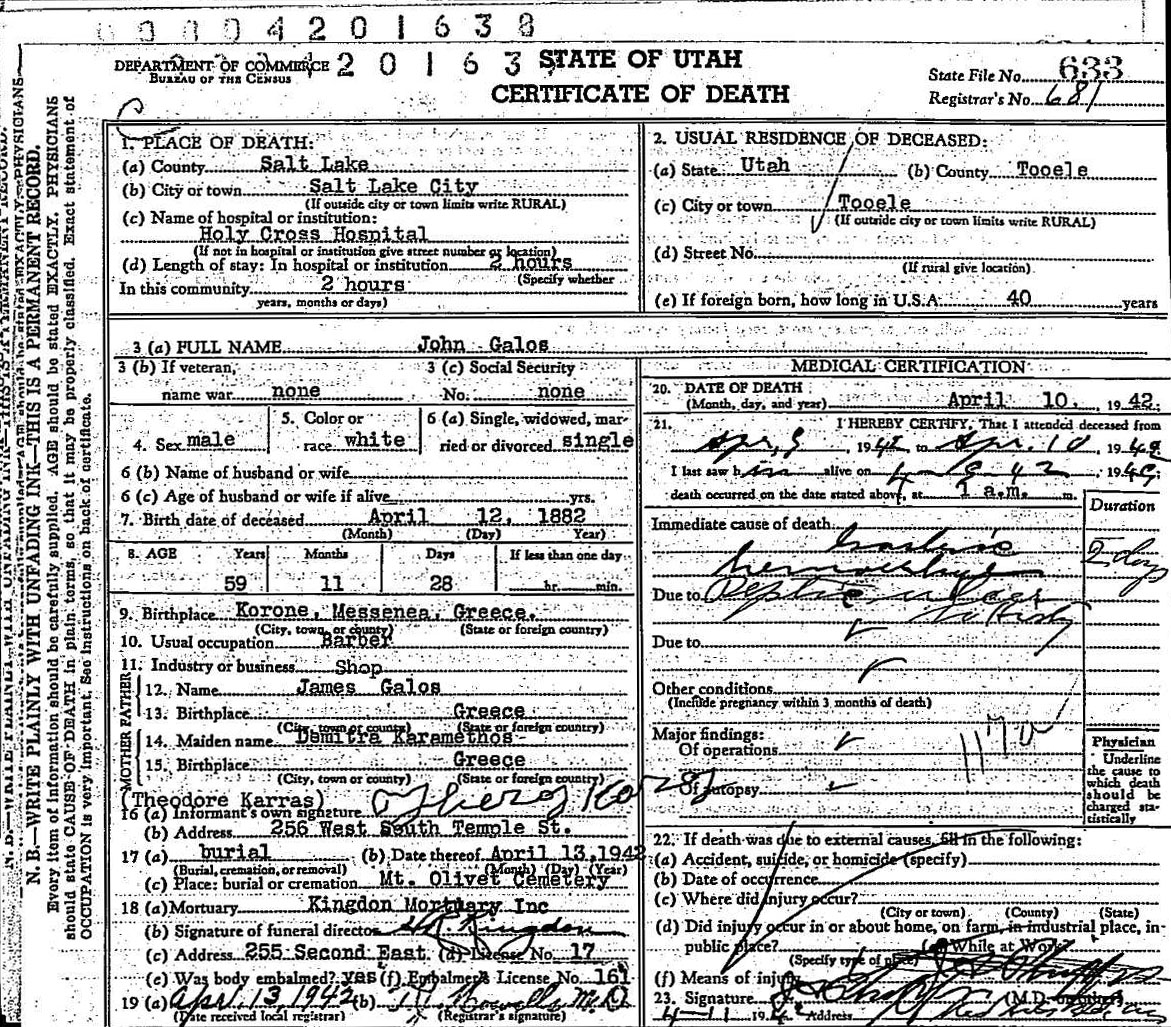 0 0 0 0 4 2 0 1 6 3 8
DEPARTMENT OF COMMERCE
BUREAU OF THE CENSUS
2 0 1 6 3
STATE OF UTAH
CERTIFICATE OF DEATH
State File No. 633
Registrar's No. 681
N. B.—WRITE PLAINLY WITH UNFADING INK—THIS IS A PERMANENT RECORD.
Every item of information should be carefully supplied. AGE should be stated EXACTLY. PHYSICIANS
should state CAUSE OF DEATH in plain terms, so that it may be properly classified. Exact statement of
OCCUPATION is very important. See instructions on back of certificate.
1. PLACE OF DEATH:
(a) County Salt Lake
(b) City or town Salt Lake City
(If outside city or town limits write RURAL)
(c) Name of hospital or institution:
Holy Cross Hospital
(If not in hospital or institution give street number or location)
(d) Length of stay: In hospital or institution 2 hours
(Specify whether
In this community 2 hours
years, months or days)
2. USUAL RESIDENCE OF DECEASED:
(a) State Utah (b) County Tooele
(c) City or town Tooele
(If outside city or town limits write RURAL)
(d) Street No.
(If rural give location)
(e) If foreign born, how long in U.S.A. 40 years
3 (a) FULL NAME John Galos
3 (b) If veteran, name war none
3 (c) Social Security No. none
4. Sex male
5. Color or race white
6 (a) Single, widowed, married or divorced single
6 (b) Name of husband or wife
6 (c) Age of husband or wife if alive yrs.
7. Birth date of deceased April 12, 1882
(Month) (Day) Year)
8. AGE Years Months Days If less than one day
59 11 28 hr. min.
9. Birthplace Korone, Messenea, Greece.
(City, town, or county) (State or foreign country)
10. Usual occupation Barber
11. Industry or business Shop
FATHER
12. Name James Galos
13. Birthplace Greece
(City, town or county) (State or foreign country)
MOTHER
14. Maiden name Demitra Karamethos
15. Birthplace Greece
(City, town or county) (State or foreign country)
(Theodore Karras)
16 (a) Informant's own signature
(b) Address 256 West South Temple St.
17 (a) burial (b) Date thereof April 13,1942
(Burial, cremation, or removal) (Month) (Day) (Year)
(c) Place: burial or cremation Mt. Olivet Cemetery
18 (a) Mortuary Kingdon Mortuary Inc
(b) Signature of funeral director Kingdon
(c) Address 255 Second East (d) License No. 17
(e) Was body embalmed? yes (f) Embalmer's License No. 161
19 (a) Apr. 13 1942 (b) M.D.
(Date received local registrar) (Registrar's signature)
MEDICAL CERTIFICATION
20. DATE OF DEATH
(Month, day, and year) April 10, 1942.
21. I HEREBY CERTIFY, That I attended deceased from
Apr. 9 1942 to Apr. 10 1942
I last saw him alive on 4 9 42 19
death occurred on the date stated above, at 1 a.m. m.
Duration
Immediate cause of death
Gastric
hemorrhage
2 days
Due to Peptic ulcer
Due to
Other conditions
(Include pregnancy within 3 months of death)
Major findings:
Of operations
Of autopsy
117a
Physician
Underline
the cause to
which death
should be
charged sta-
tistically
22. If death was due to external causes, fill in the following:
(a) Accident, suicide, or homicide (specify)
(b) Date of occurrence
(c) Where did injury occur?
(City or town) (County) (State)
(d) Did injury occur in or about home, on farm, in industrial place, in-
public place? (e) While at Work?
(Specify type of place)
(f) Means of injury
23. Signature (M.D. or other)
4-11 1942 Address